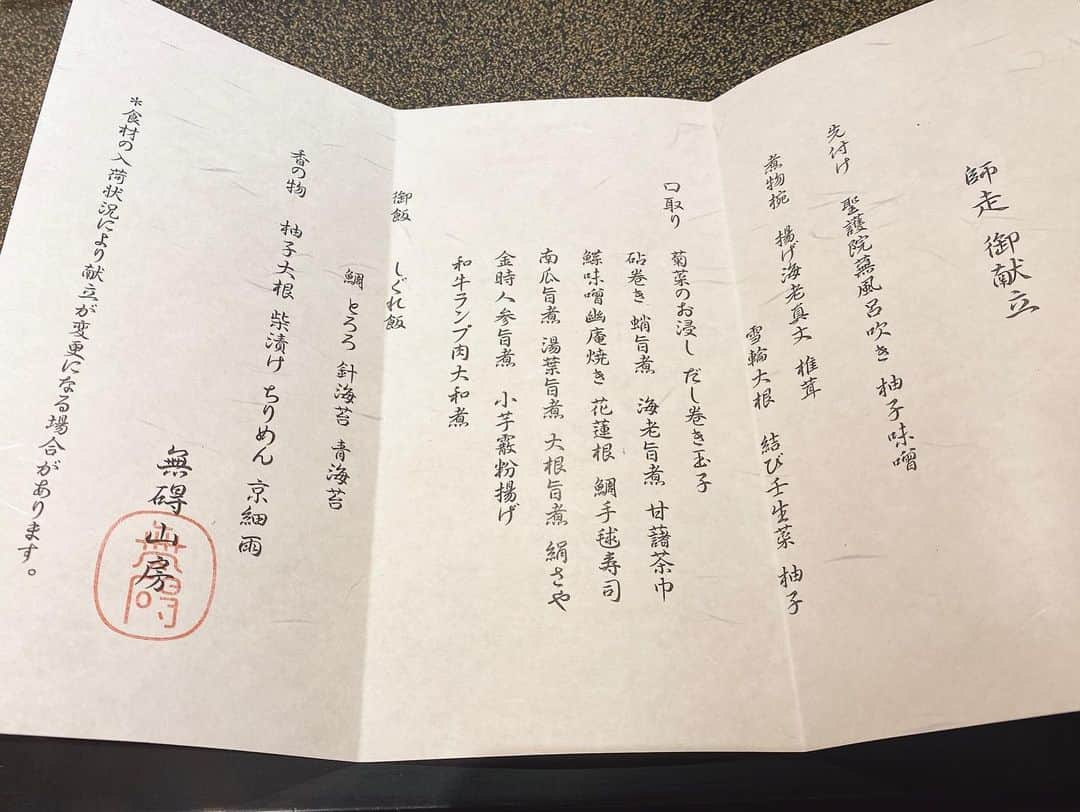 師走 御献立
先付け 聖護院蕪風呂吹き 柚子味噌
煮物椀 揚げ海老真丈 椎茸
雪輪大根 結び壬生菜 柚子
口取り 菊菜のお浸し だし巻き玉子
砧巻き 蛸旨煮 海老旨煮 甘藷茶巾
鰈味噌幽庵焼き 花蓮根 鯛手毬寿司
南瓜旨煮 湯葉旨煮 大根旨煮 絹さや
金時人参旨煮 小芋霰粉揚げ
和牛ランプ肉大和煮
御飯 しぐれ飯
鯛 とろろ 針海苔 青海苔
香の物 柚子大根 柴漬け ちりめん 京細雨
無碍山房
*食材の入荷状況により献立が変更になる場合があります。